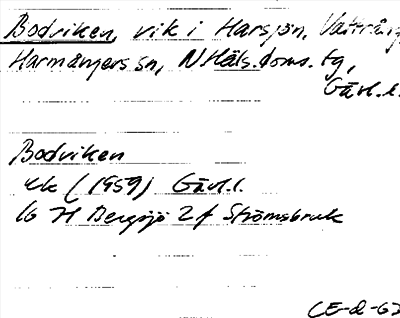 Bodviken, vik i Harsjön, Vattrång
Harmångers sn, N Häls. doms. tg,
Gävl. l.
Bodviken
ek (1959) Gävl. l.
16 H Bergsjö 2 f Strömsbruk
CE-d-62